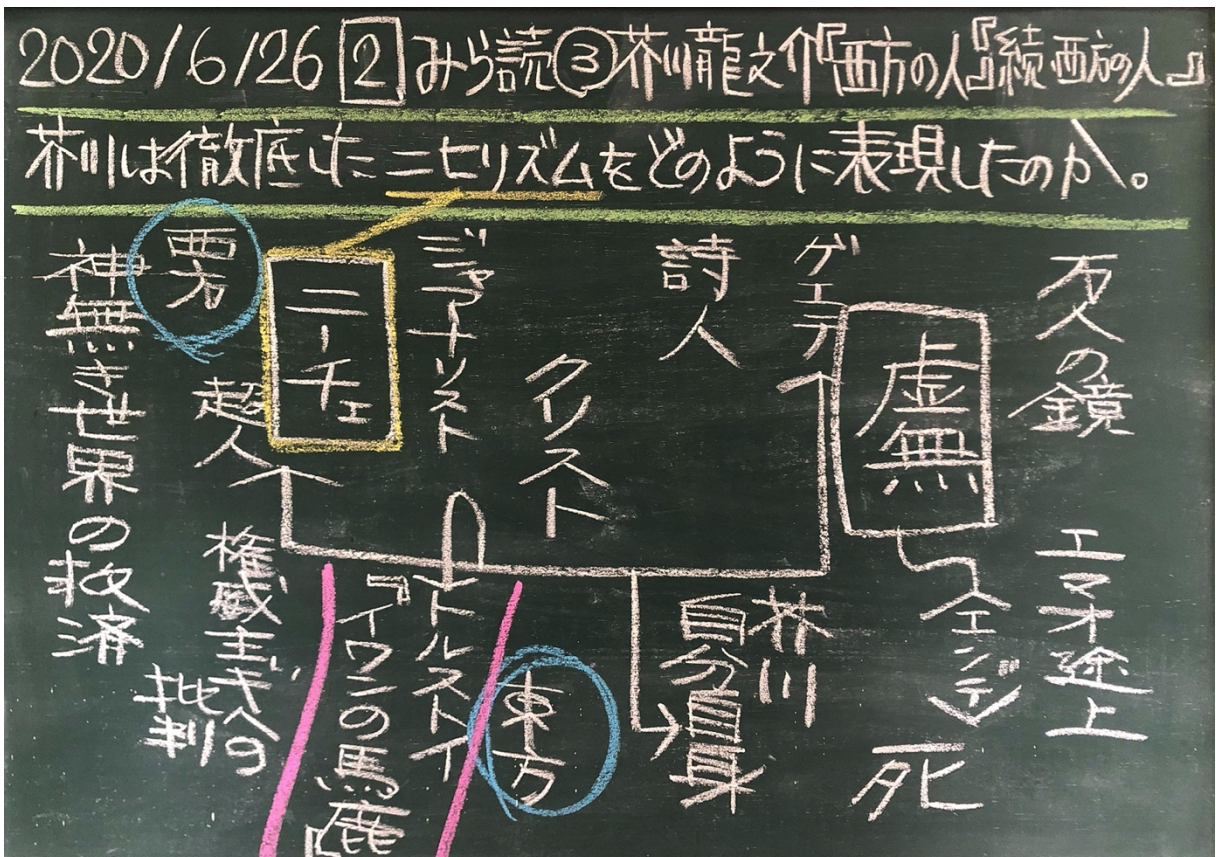 2020/6/26 2 みら読③芥川龍之介『西方の人』『続西方の人』
芥川は徹底したニヒリズムをどのように表現したのか。
万人の鏡
エマオ途上
虚無
〈エンデ〉
死
ゲエテ
詩人
芥川
自分自身
クリスト
東方
ジャアナリスト
トルストイ
『イワンの馬鹿』
ニーチェ
超人
西方
権威主義への
批判
神無き世界の救済